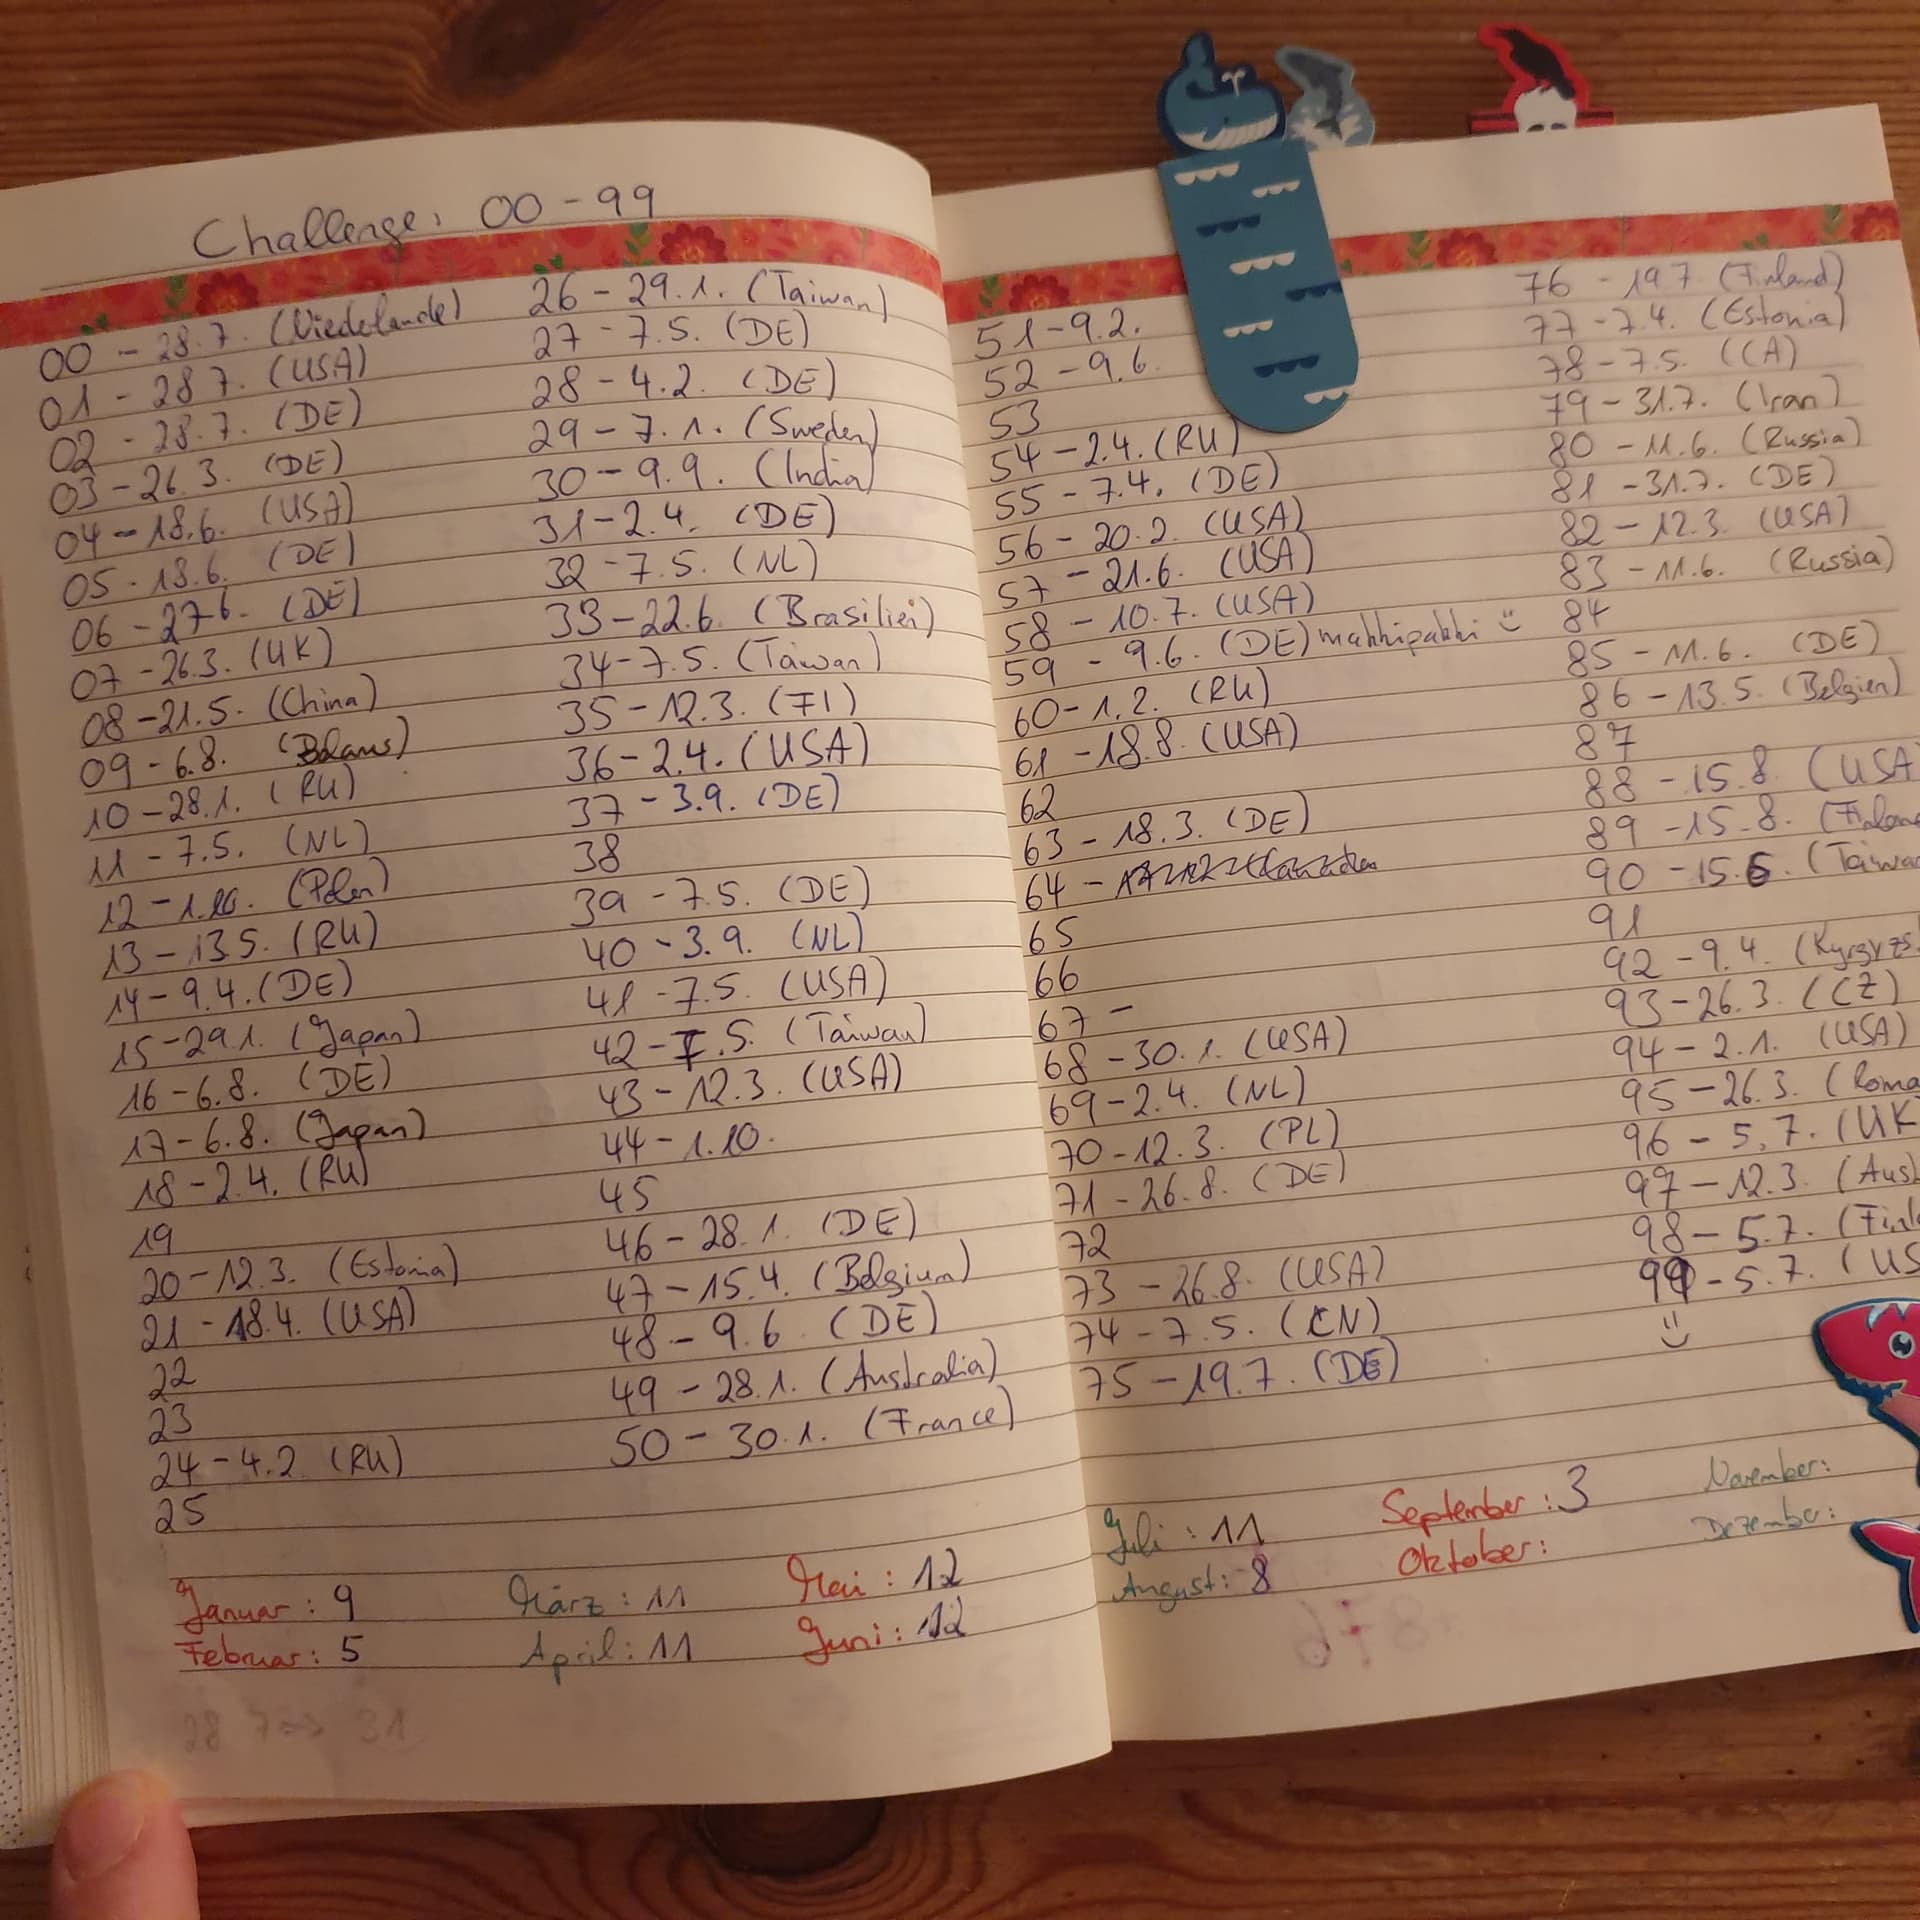 Challenge: 00-99
00 - 28.7. (Niedelande)
01 - 28.7. (USA)
02 - 28.7. (DE)
03 - 26.3. (DE)
04 - 18.6. (USA)
05 - 18.6. (DE)
06 - 27.6. (DE)
07 - 26.3. (UK)
08 - 21.5. (China)
09 - 6.8.
10 - 28.1. (RU)
11 - 7.5. (NL)
12 - 1.10. (Polen)
13 - 13.5. (RU)
14 - 9.4. (DE)
15 - 29.1. (Japan)
16 - 6.8. (DE)
17 - 6.8. (Japan)
18 - 2.4. (RU)
19
20 - 12.3. (Estonia)
21 - 18.4. (USA)
22
23
24 - 4.2. (RU)
25
26 - 29.1. (Taiwan)
27 - 7.5. (DE)
28 - 4.2. (DE)
29 - 7.1. (Sweden)
30 - 9.9. (India)
31 - 2.4. (DE)
32 - 7.5. (NL)
33 - 22.6. (Brasilien)
34 - 7.5. (Taiwan)
35 - 12.3. (FI)
36 - 2.4. (USA)
37 - 3.9. (DE)
38
39 - 7.5. (DE)
40 - 3.9. (NL)
41 - 7.5. (USA)
42 - 7.5. (Taiwan)
43 - 12.3. (USA)
44 - 1.10.
45
46 - 28.1. (DE)
47 - 15.4. (Belgium)
48 - 9.6. (DE)
49 - 28.1. (Australia)
50 - 30.1. (France)
Januar: 9
Februar: 5
März: 11
April: 11
Mai: 12
Juni: 12
28 7 => 31
51 - 9.2.
52 - 9.6.
53
54 - 2.4. (RU)
55 - 7.4. (DE)
56 - 20.2. (USA)
57 - 21.6. (USA)
58 - 10.7. (USA)
59 - 9.6. (DE) mahhipahhi :)
60 - 1.2. (RU)
61 - 18.8. (USA)
62
63 - 18.3. (DE)
64 -
65
66
67 -
68 - 30.1. (USA)
69 - 2.4. (NL)
70 - 12.3. (PL)
71 - 26.8. (DE)
72
73 - 26.8. (USA)
74 - 7.5. (CN)
75 - 19.7. (DE)
76 - 19.7. (Finland)
77 - 7.4. (Estonia)
78 - 7.5. (CA)
79 - 31.7. (Iran)
80 - 11.6. (Russia)
81 - 31.7. (DE)
82 - 12.3. (USA)
83 - 11.6. (Russia)
84
85 - 11.6. (DE)
86 - 13.5. (Belgien)
87
88 - 15.8. (USA)
89 - 15.8. (Finlan
90 - 15.6. (Taiwa
91
92 - 9.4. (Kyrgyzs
93 - 26.3. (CZ)
94 - 2.1. (USA)
95 - 26.3. (Roma
96 - 5.7. (UK
97 - 12.3. (Aus
98 - 5.7. (Finl
99 - 5.7. (US
:)
Juli: 11
August: 8
September: 3
Oktober:
November:
Dezember: